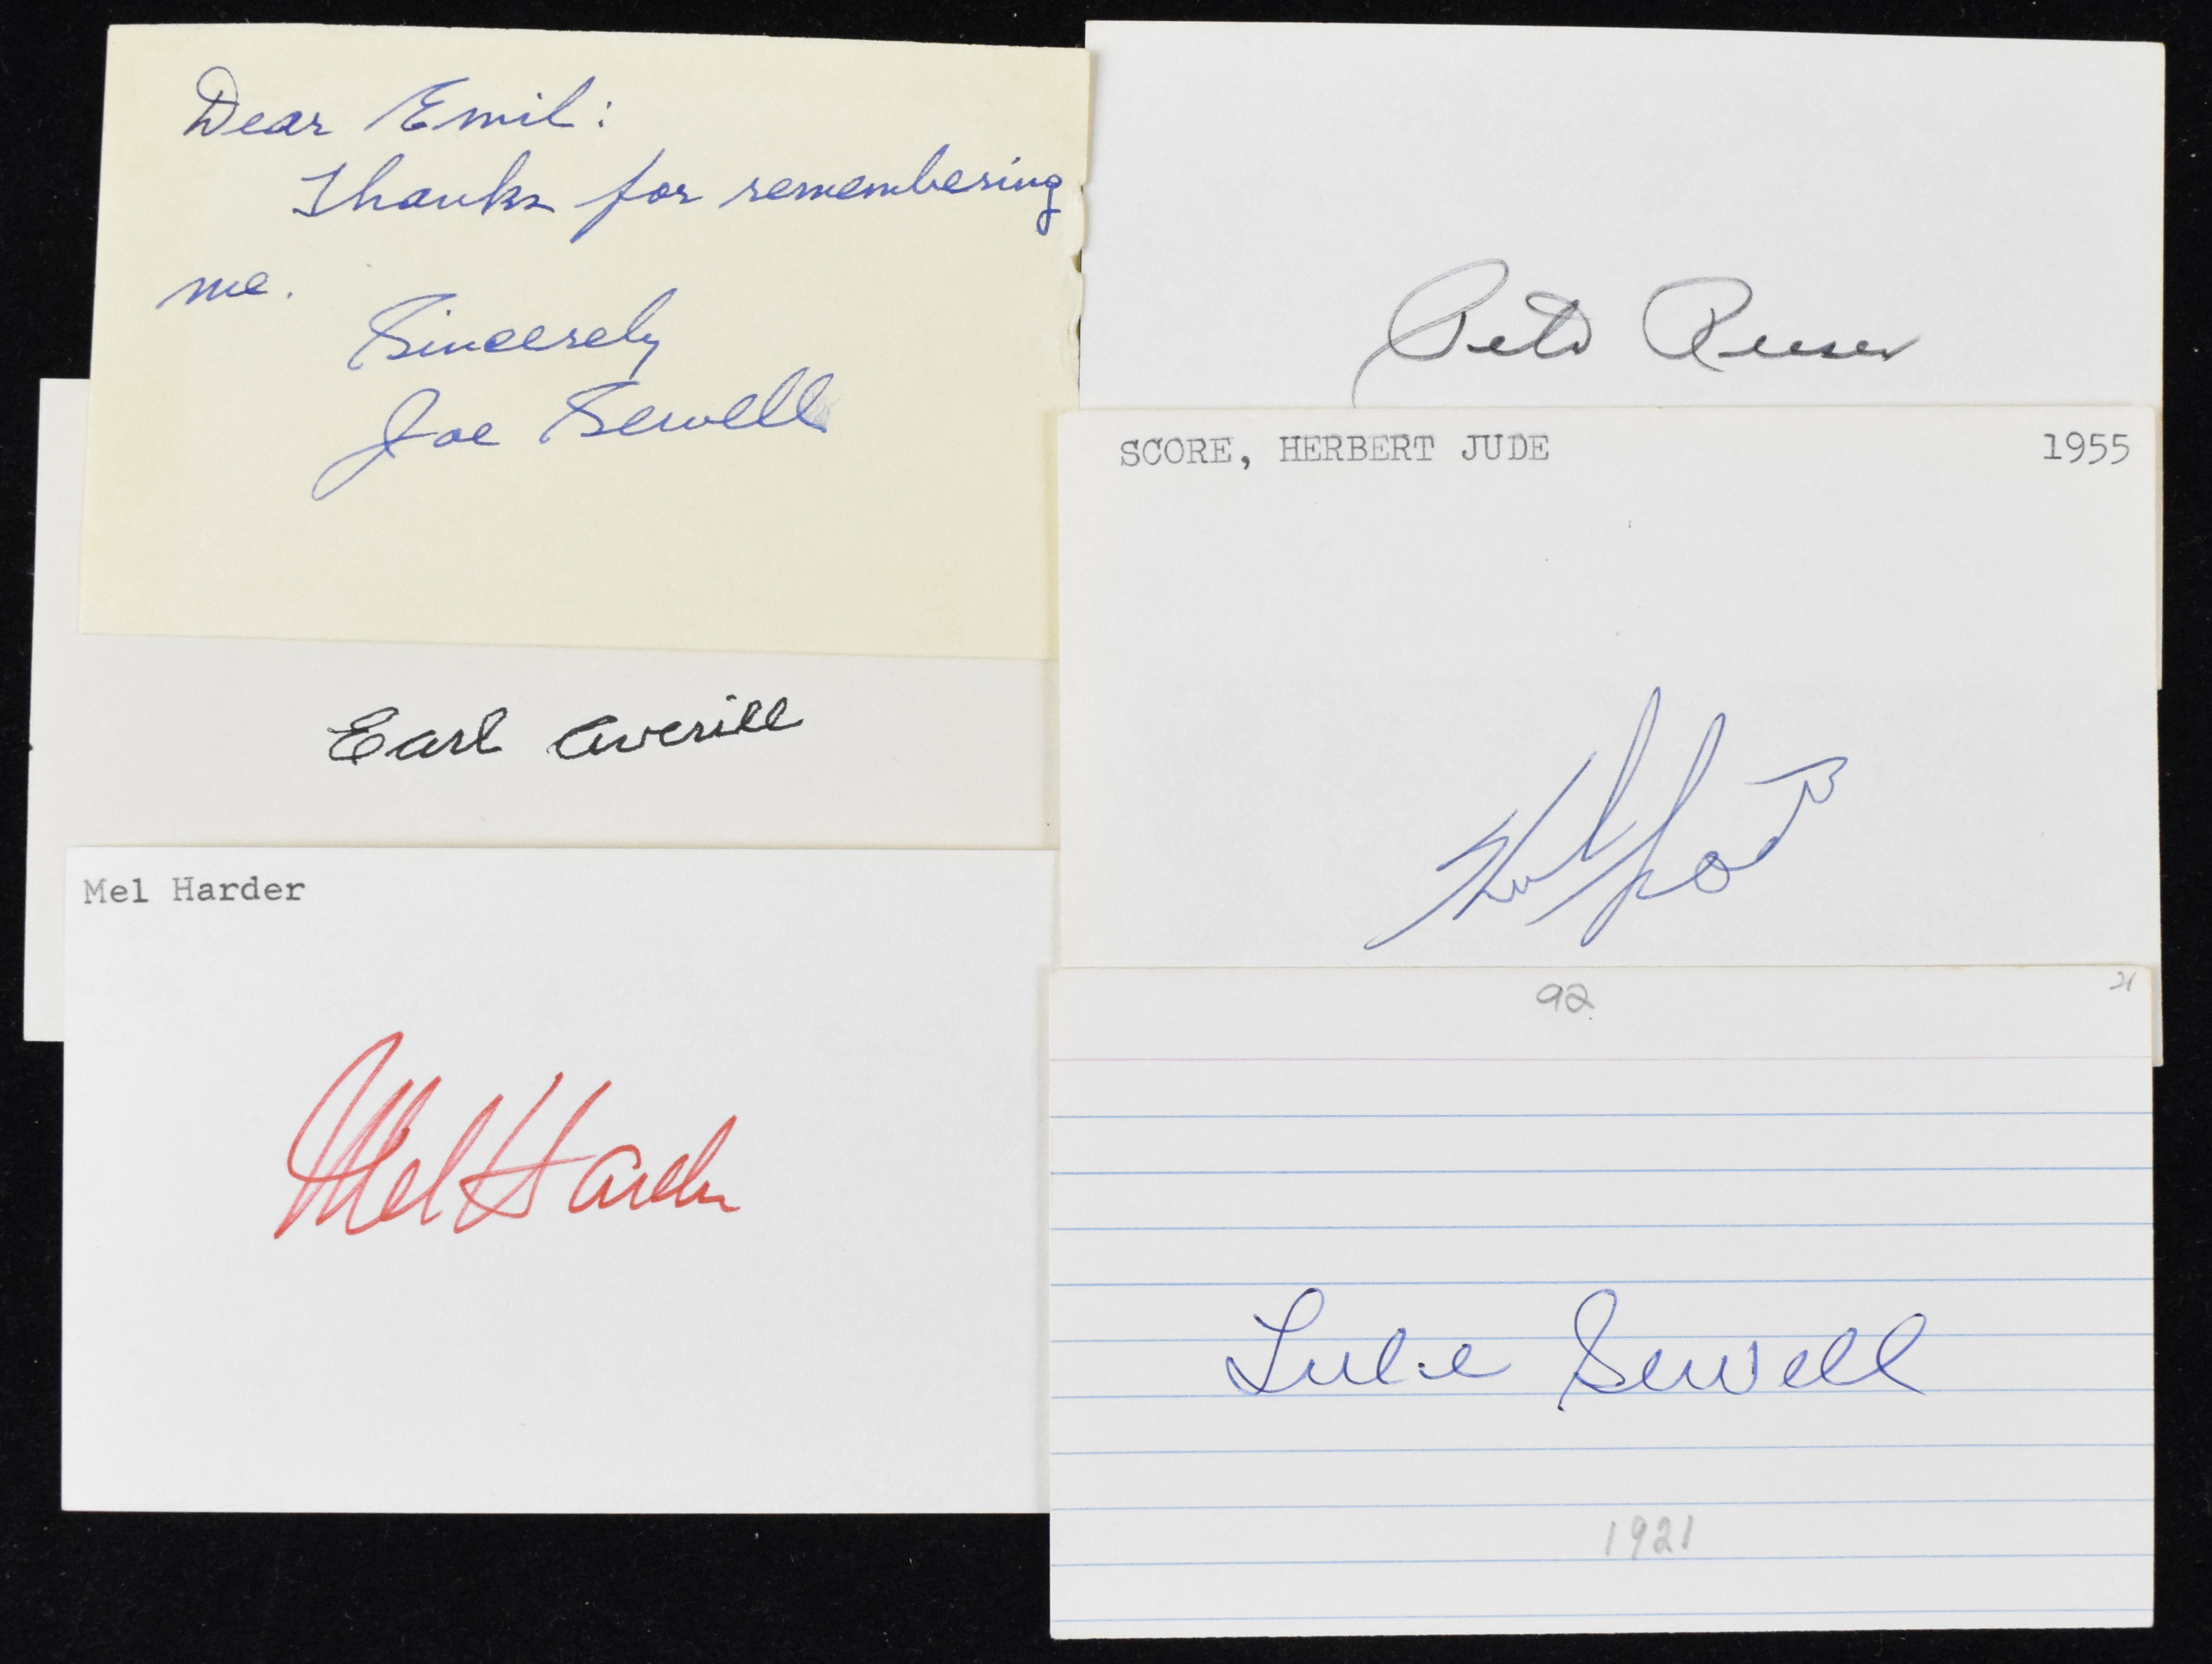 Dear Emil:
Thanks for remembering
me.
Sincerely
Joe Sewell
Pete Reiser
SCORE, HERBERT JUDE 1955
Herb Score
Earl Averill
Mel Harder
Mel Harder
92 21
Luke Sewell
1921